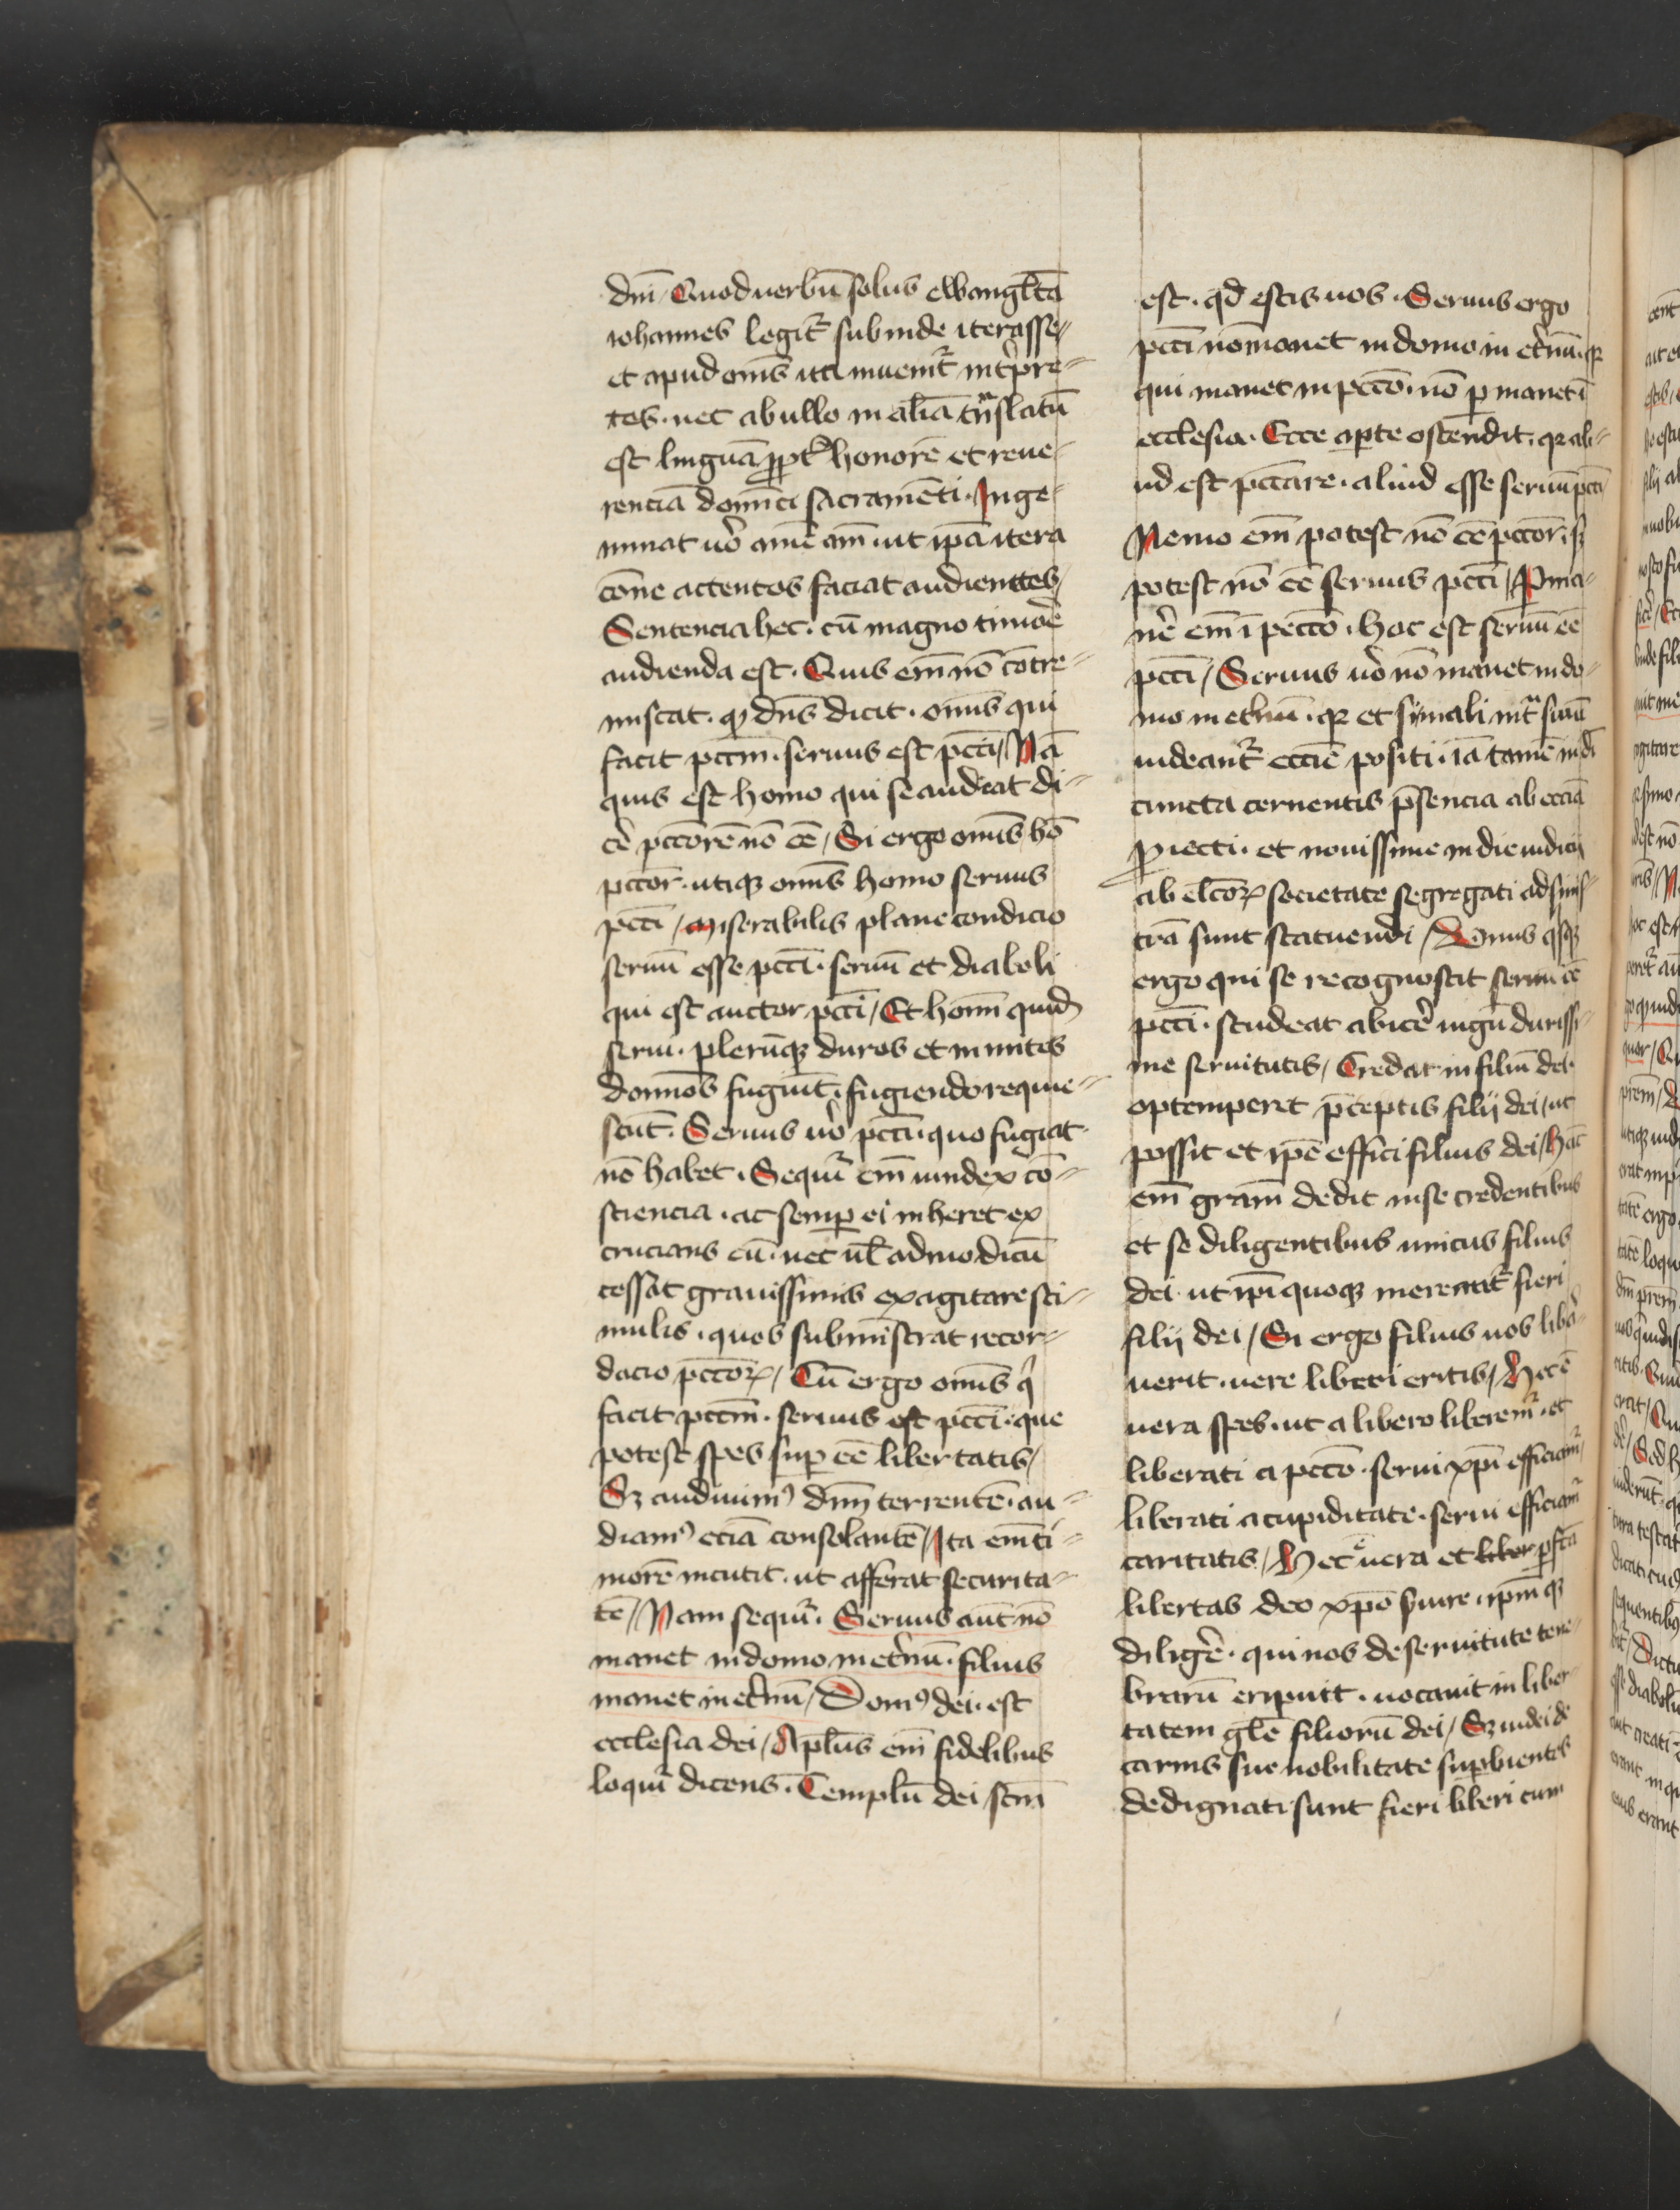 dn̄i / Quod uerbū solus ewangl̄ta
iohannes legit᷑ subinde iterasse
et apud om̄s ita inuenit᷑ int̾pre-
tes · nec ab ullo in aliā tn̄slatū
est linguā ꝓpt̾ honorē et reue-
renciā domīci sacramēti · Inge-
minat ūo amē am̄ · ut ip̄a itera
cōne attentos faciat audienttes /
Sentencia hec · cū magno timōe
audienda est · Quis em̄ nō cōtre-
miscat · ꝙ dn̄s dicit · om̄is qui
facit pctm̄ · seruus est pcc̄i / Nā
quis est homo qui se audeat di-
ce᷑ pcc̄orē nō eē / Si ergo om̄is hō
pcc̄or · utiqꝫ om̄is homo seruus
pcc̄i / Miserabilis plane condicio
seruū esse pcc̄i · seruū et diaboli
qui est auctor pcc̄i / Et hom̄ quidē
serui · plerūqꝫ duros et inmites
domnōs fugiūt · fugiendo requie-
scūt · Seruus ūo pcc̄i · quo fugiat
nō habet · Sequit᷑ em̄ uindex cō-
sciencia · ac semꝑ ei inheret ex
crucians eū · nec ul̄ ad modicū
cessat grauissimis exagitare sti-
mulis · quos subministrat recor-
dacio pcc̄oꝝ / Cū ergo om̄is q̇
facit pctm̄ · seruus est pcc̄i · que
potest spes suꝑ eē libertatis /
Sꝫ audiuimꝰ dn̄m terrentē · au-
diamꝰ eciā consolantē / Ita em̄ ti-
morē incutit · ut afferat securita-
tē / Nam sequit᷑ · Seruus aut̄ nō
manet in domo in et̾nū · filius
manet in et̾nū / Domꝰ dei · est
ecclesia dei / Apl̄us em̄ fidelibus
loquit᷑ dicens · Templū dei scm̄
est · qd̄ estis uos · Seruus ergo
pcc̄i nō manet in domo in et̾nū · qꝛ
qui manet in pcc̄o · nō ꝑ manet ī
ecclesia · Ecce aperte ostendit · qꝛ ali-
ud est pcc̄are · aliud esse seruū pcc̄i
Nemo em̄ potest nō eē pcc̄or · sꝫ
potest nō eē seruus pcc̄i / Ꝑma-
ne᷑ em̄ ī pecc̄o · hoc est seruū eē
pcc̄i / Seruus ūo nō manet in do-
mo in et̾nū · qꝛ et si mali int᷑ suā
uideant᷑ ecc̄ie positi · iā tamē in di
cuncta cernentis p̄sencia ab ecc̄ia
ꝓiecti · et nouissime in die iudicij
ab elc̄oꝝ societate segregati ad sinis-
trā sunt statuendi / Vnus qsqꝫ
ergo qui se recognoscit seruū eē
pcc̄i · studeat abice᷑ iugū durissi-
me seruitutis / Credat in filiū dei ·
optemperet p̄ceptis filij dei / ut
possit et ip̄e effici filius dei / hāc
em̄ gram̄ dedit in se credentibus
et se diligentibus unicus filius
dei · ut ip̄i quoqꝫ mereant᷑ fieri
filij dei / Si ergo filius uos libe-
uerit · uere liberi eritis / Hec ē
uera spes · ut a libero liberem᷑ · et
liberati a pcc̄o · serui xp̄i efficiam᷑ /
liberati a cupiditate · serui efficiam᷑
caritatis / Hec ē uera et liber ꝑfcā
libertas deo xp̄o s̾uire · ip̄m qꝫ
dilige᷑ · qui nos de seruitute tene-
brarū eripuit · uocauit in liber-
tatem gl̄e filiorū dei / Sꝫ iudei de
carnis sue nobilitate suꝑbientes
dedignati sunt fieri liberi cum